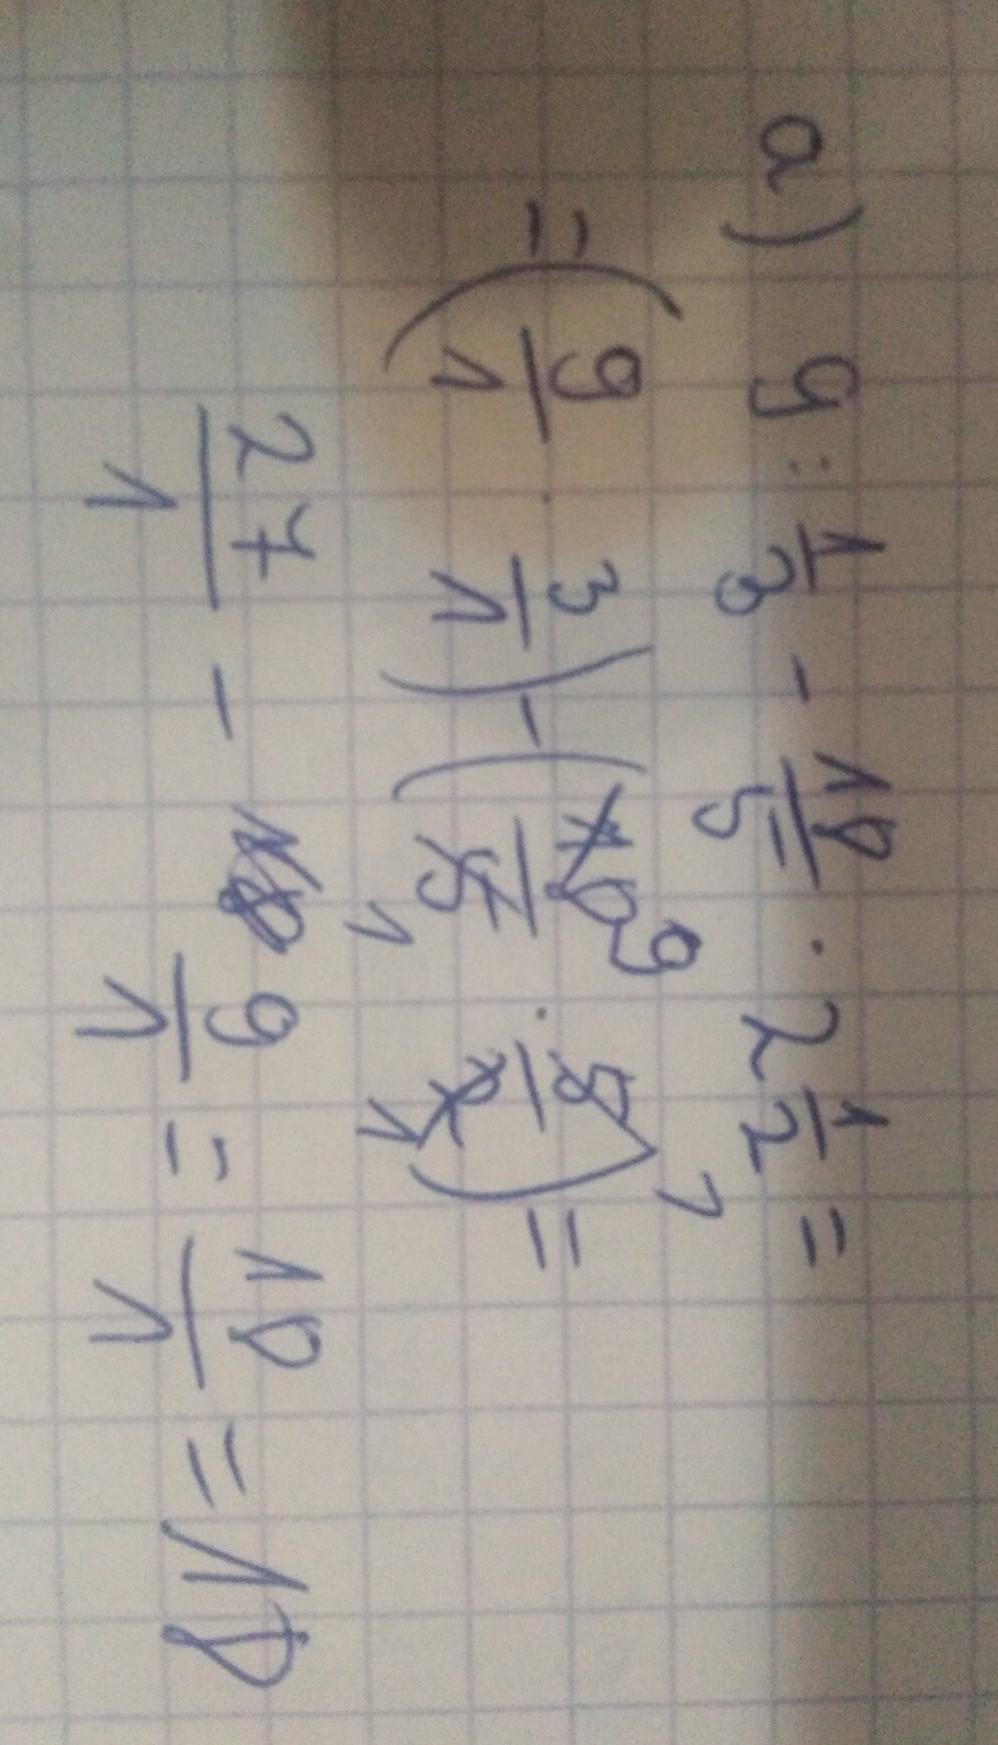 a) 9 : 1/3 - 18/5 · 2 1/2 =
= (9/1 · 3/1) - (18/5 9 1 · 5/2 1 1) =
27/1 - 9/1 = 18/1 = 18